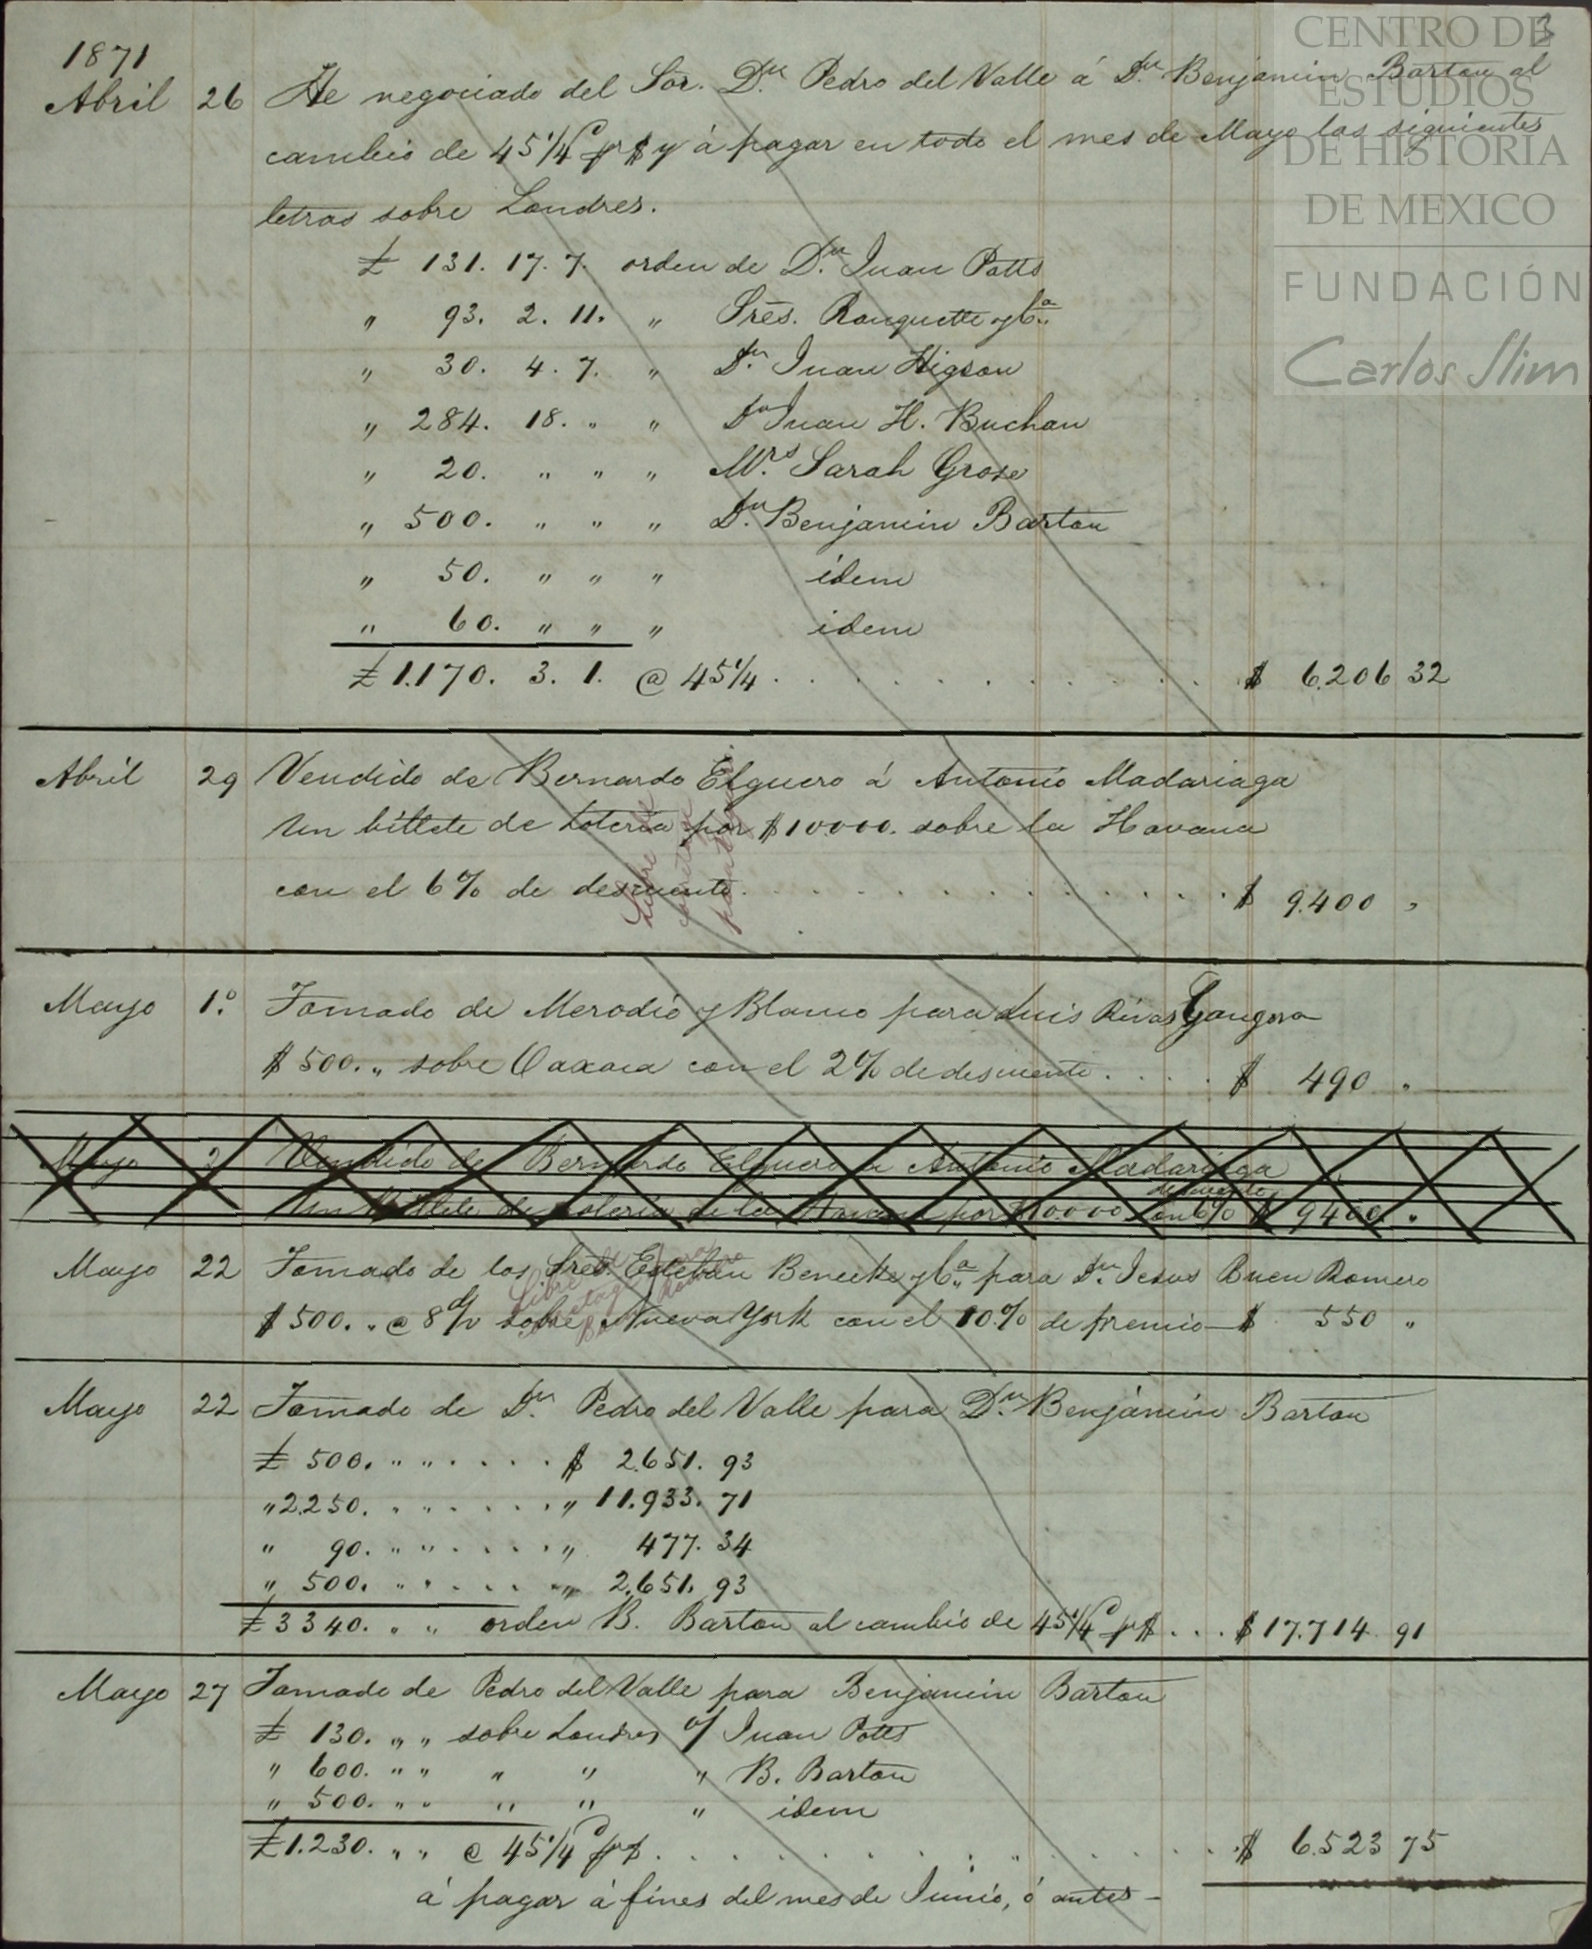 3
1871
Abril 26 He negociado del Sor. Dn. Pedro del Valle á Dn. Benjamin Barton al
cambio de 45 1/4 d pr $ y á pagar en todo el mes de Mayo las siguientes
letras sobre Londres.
£ 131. 17. 7. orden de Dn. Juan Potts
" 93. 2. 11. " Sres. Rouquette y Ca.
" 30. 4. 7. " Dn. Juan Higson
" 284. 18. " " Dn Juan H. Buchan
" 20. " " " Mrs. Sarah Grose
" 500. " " " Dn. Benjamin Barton
" 50. " " " idem
" 60. " " " idem
£ 1.170. 3. 1. @ 45 1/4 . . . . . . . . . . . . $ 6.206 32
Abril 29 Vendido de Bernardo Elguero á Antonio Madariaga
Un billete de Lotería por $10000. sobre la Havana
con el 6% de descuento. . . . . . . . . . . . $ 9.400 "
Mayo 1.º Tomado de Merodio y Blanco para Luis Rivas Gongora
$ 500. " sobre Oaxaca con el 2% de descuento . . . . $ 490 "
Mayo 2 Vendido de Bernardo Elguero a Antonio Madariaga
descuento
Un billete de Lotería de la Havana por $10.000 con 6% $ 9400. "
Mayo 22 Tomado de los Sres. Esteban Benecke y Ca. para Dn. Jesus Buen Romero
$ 500. " @ 8 d/v sobre Nueva York con el 10% de premio — $ 550 "
Mayo 22 Tomado de Dn. Pedro del Valle para Dn. Benjámin Barton
£ 500. " " . . . . $ 2.651. 93
" 2.250. " " . . . . " 11.933. 71
" 90. " " . . . . " 477. 34
" 500. " " . . . . " 2.651. 93
£ 3340. " " orden B. Barton al cambio de 45 1/4 d pr $ . . . $ 17.714 91
Mayo 27 Tomado de Pedro del Valle para Benjamin Barton
£ 130. " " sobre Londres o/ Juan Potts
" 600. " " " " " B. Barton
" 500. " " " " " idem
£ 1.230. " " @ 45 1/4 d pr $ . . . . . . . . . . . . $ 6.523 75
á pagar á fines del mes de Junio, ó antes —
CENTRO DE
ESTUDIOS
DE HISTORIA
DE MEXICO
FUNDACIÓN
Carlos Slim